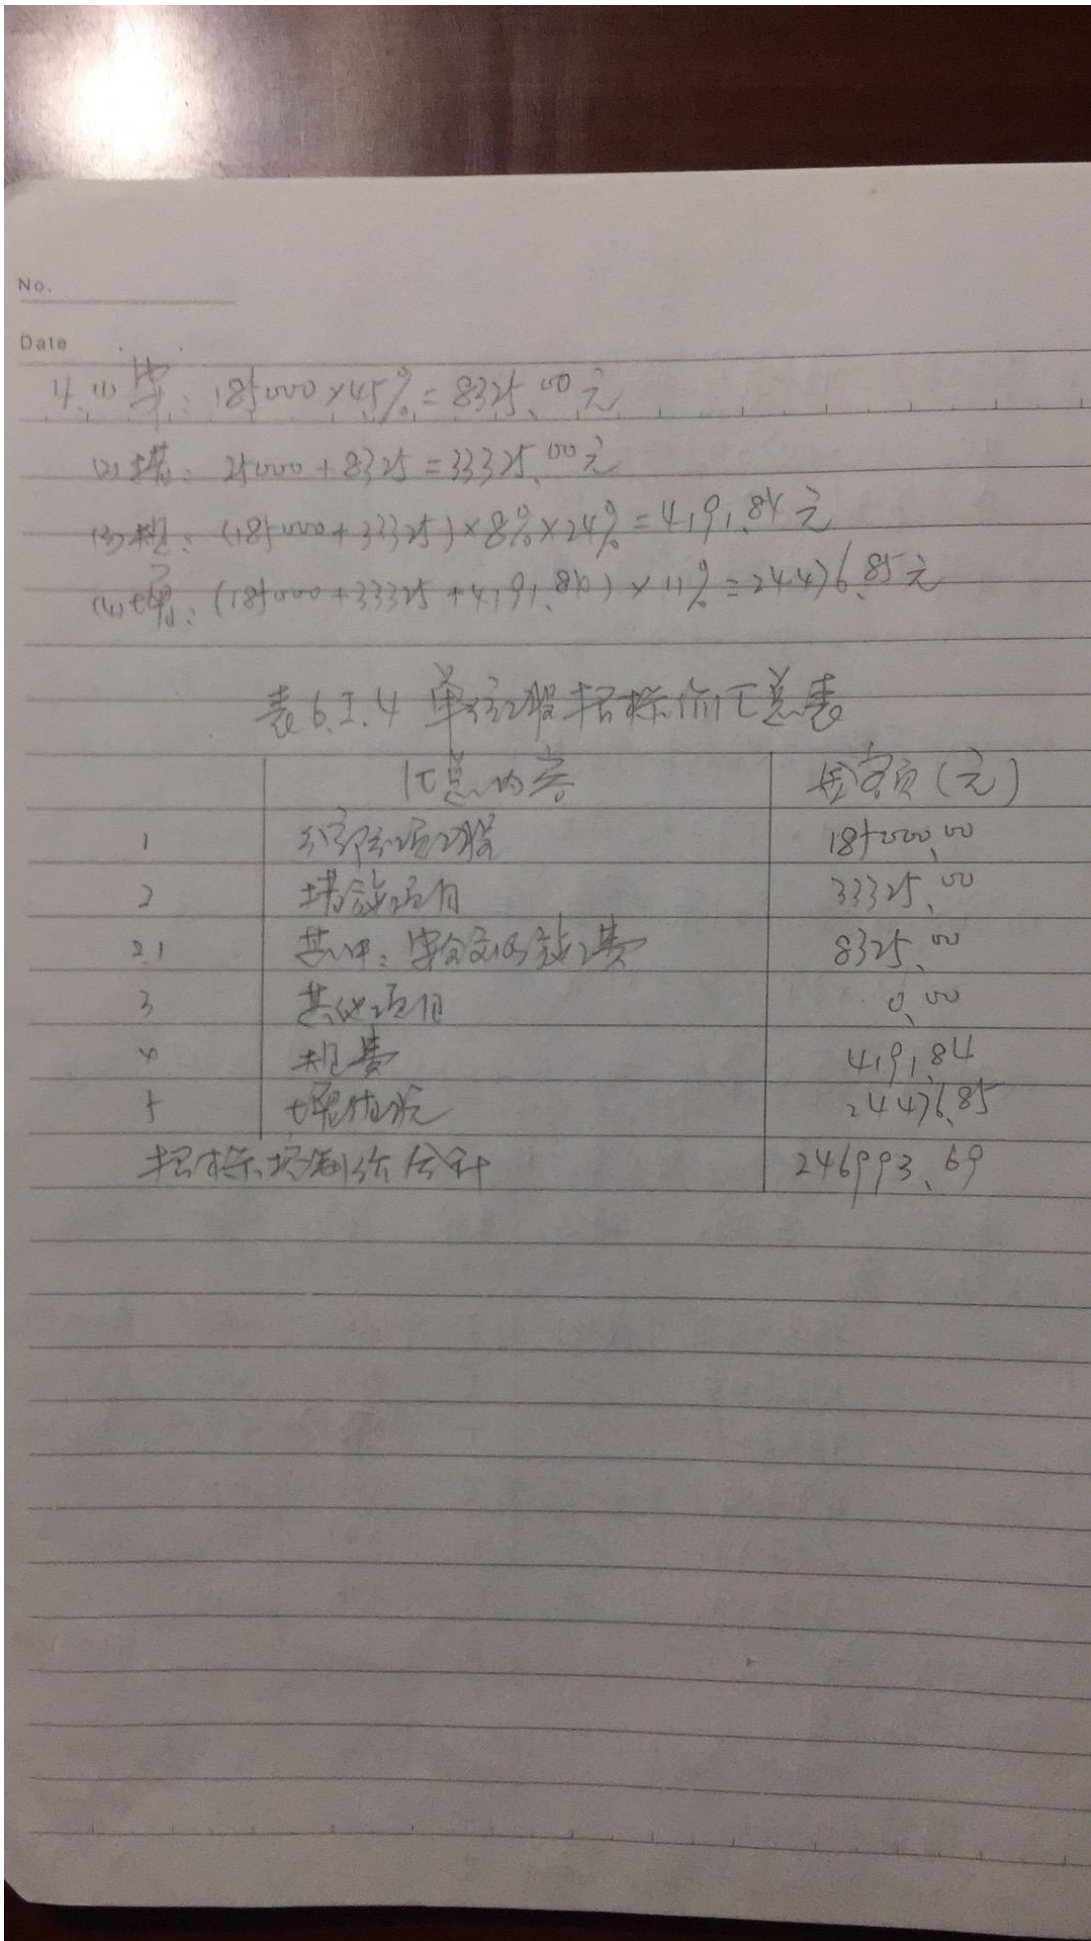 No.
Date
4.(1) 安: 185000×4.5%=8325.00元
(2) 措: 25000+8325=33325.00元
(3) 规: (185000+33325)×8%×24%=4191.84元
(4) 增: (185000+33325+4191.84)×11%=24476.85元
表6.I.4 单位工程招标价汇总表
汇总内容 金额(元)
1 分部分项工程 185000.00
2 措施项目 33325.00
2.1 其中: 安全文明施工费 8325.00
3 其他项目 0.00
4 规费 4191.84
5 增值税 24476.85
招标控制价合计 246993.69